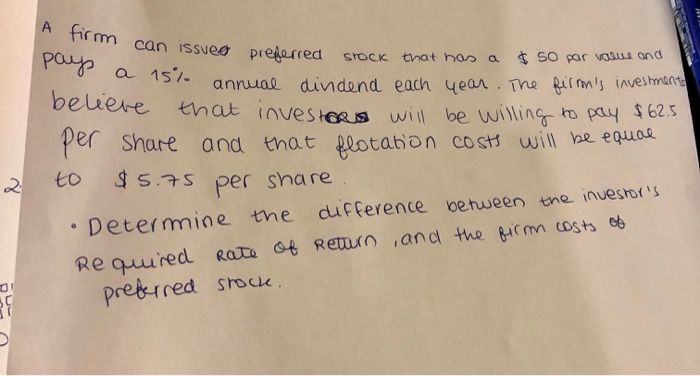 A firm can issued preferred stock that has a $ 50 par value and
pays a 15% annual dividend each year. The firm's investments
believe that investors will be willing to pay $62.5
per share and that flotation costs will be equal
2. to $5.75 per share.
• Determine the difference between the investor's
Required Rate of Return, and the firm costs of
preferred stock.